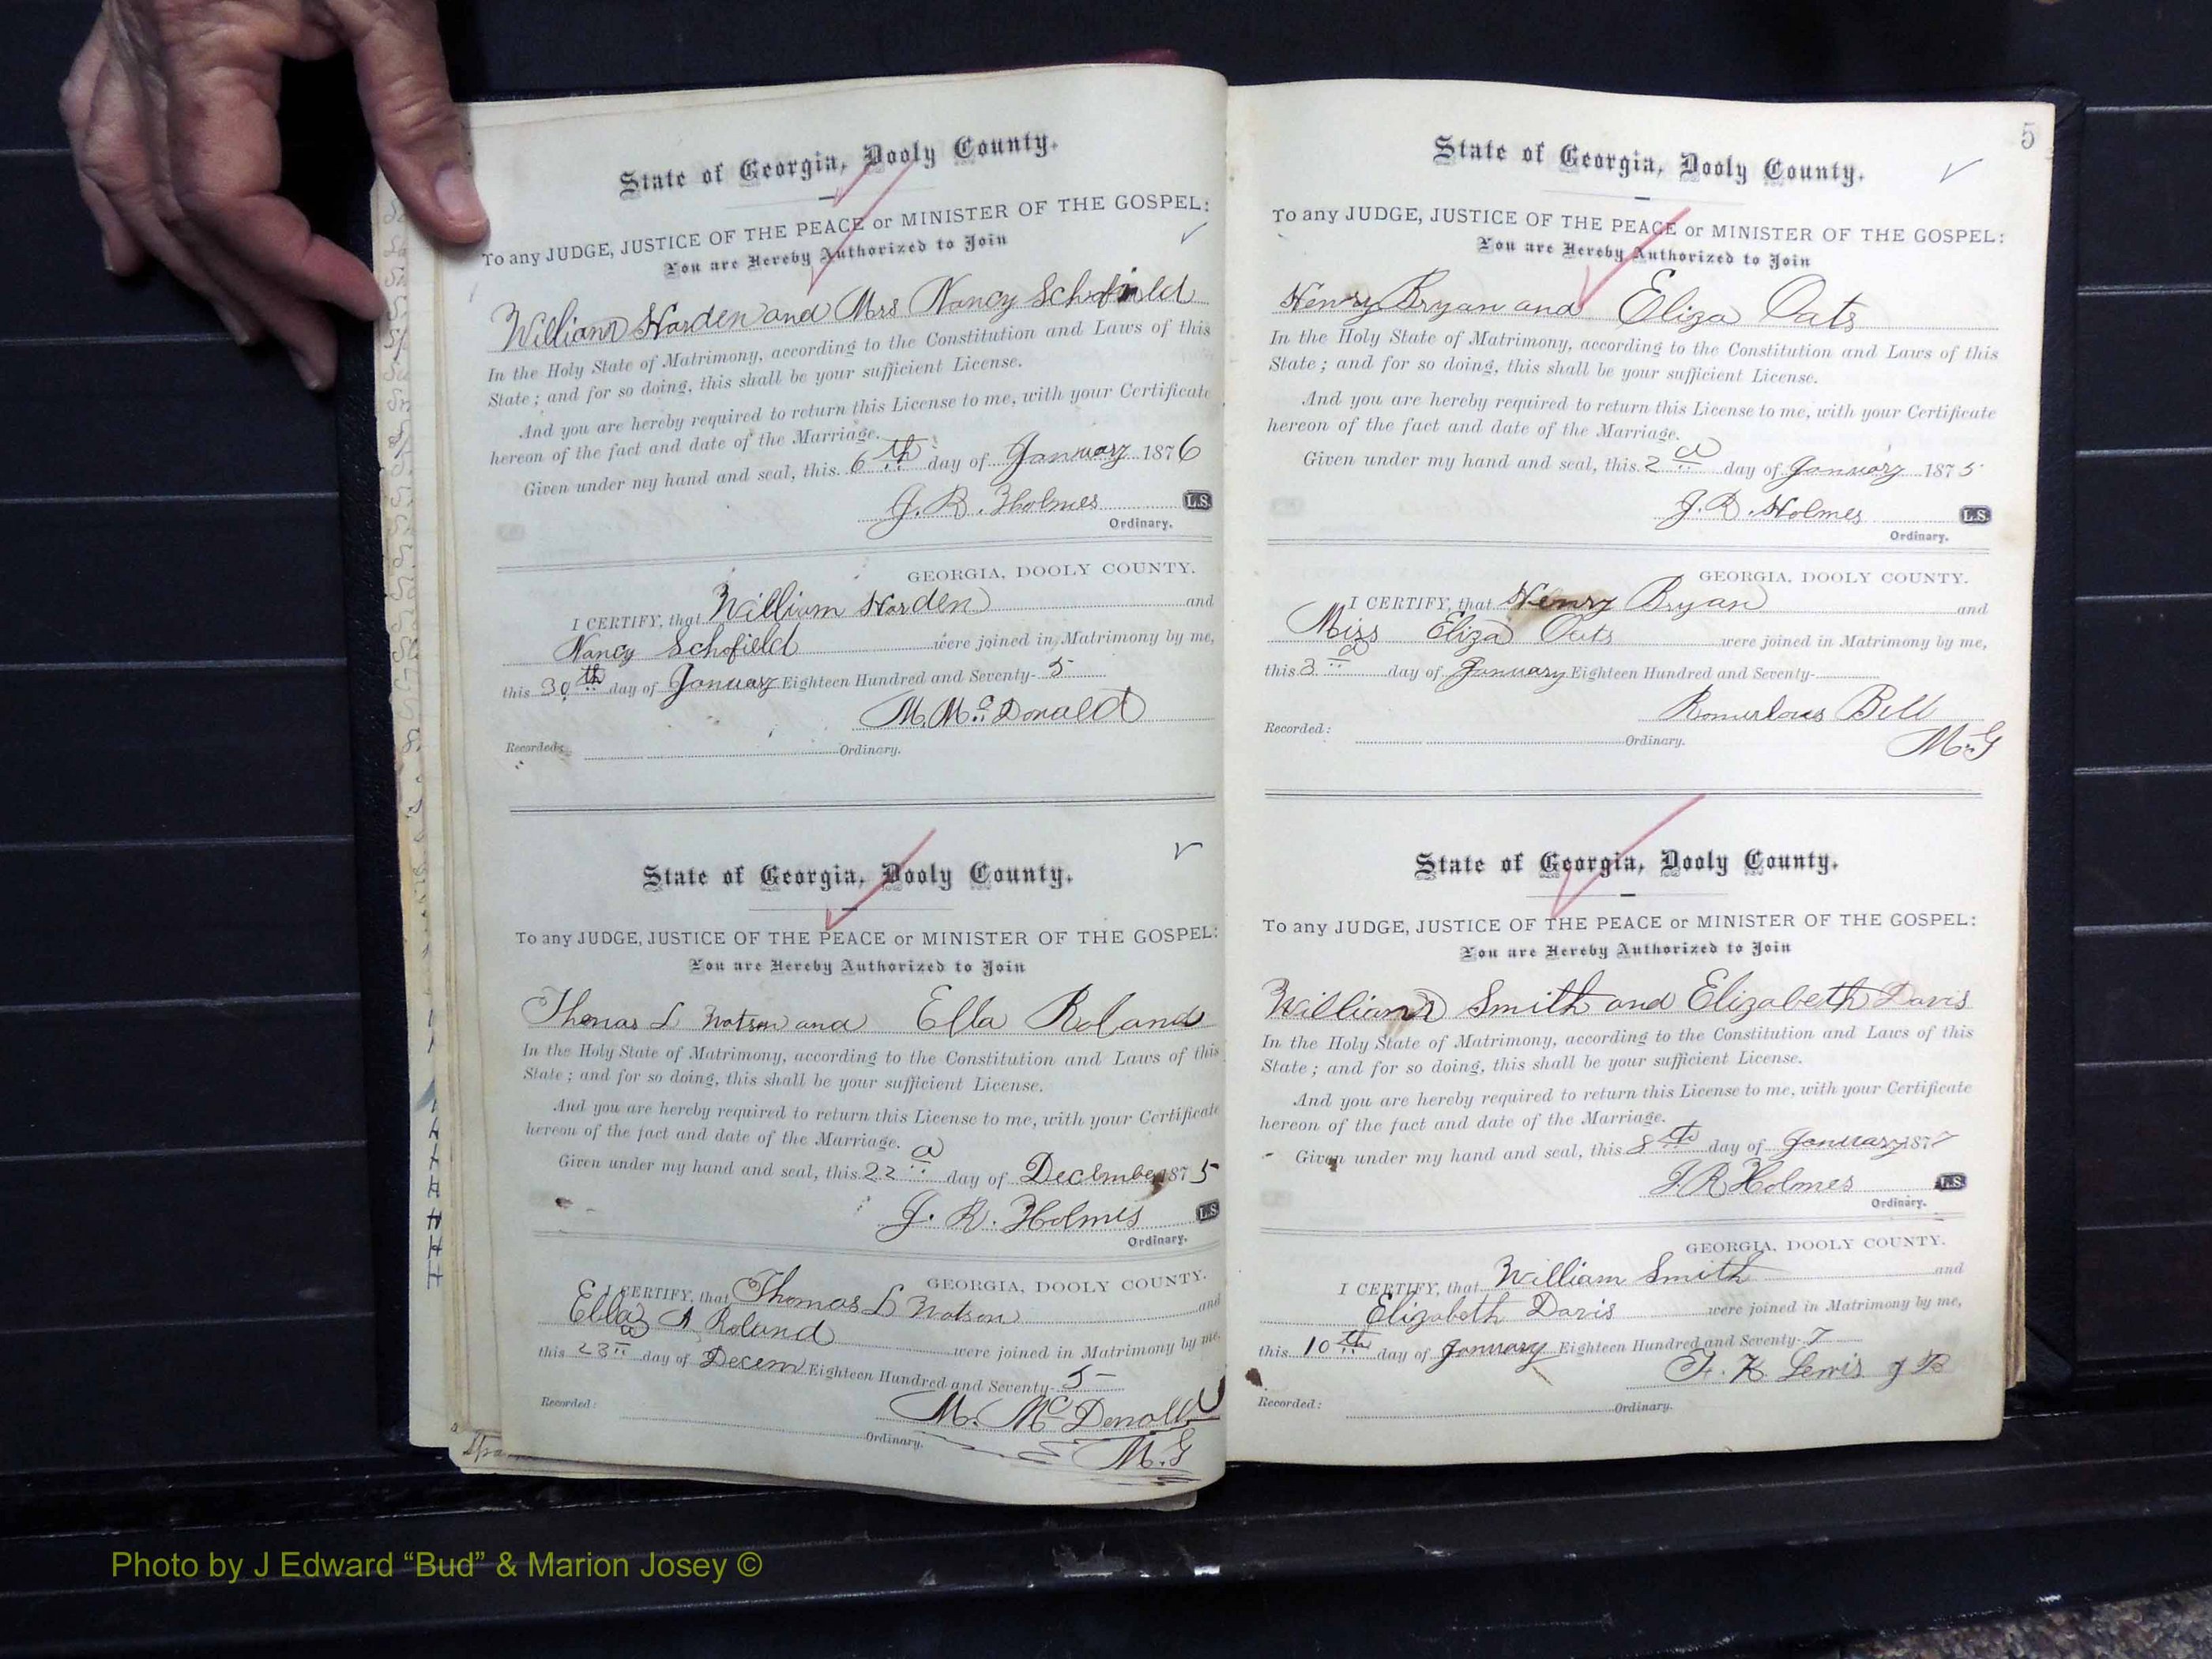 State of Georgia, Dooly County.
To any JUDGE, JUSTICE OF THE PEACE or MINISTER OF THE GOSPEL:
You are Hereby Authorized to Join
William Harden and Mrs Nancy Schofield
In the Holy State of Matrimony, according to the Constitution and Laws of this
State; and for so doing, this shall be your sufficient License.
And you are hereby required to return this License to me, with your Certificate
hereon of the fact and date of the Marriage.
Given under my hand and seal, this 6th day of January 1876
J. R. Holmes L.S.
Ordinary.
GEORGIA, DOOLY COUNTY.
I CERTIFY, that William Harden and
Nancy Schofield were joined in Matrimony by me,
this 30th day of January Eighteen Hundred and Seventy-5
M. McDonald
Recorded: Ordinary.
State of Georgia, Dooly County.
To any JUDGE, JUSTICE OF THE PEACE or MINISTER OF THE GOSPEL:
You are Hereby Authorized to Join
Thomas L Watson and Ella Roland
In the Holy State of Matrimony, according to the Constitution and Laws of this
State; and for so doing, this shall be your sufficient License.
And you are hereby required to return this License to me, with your Certificate
hereon of the fact and date of the Marriage.
Given under my hand and seal, this 22d day of December 1875
J. R. Holmes L.S.
Ordinary.
GEORGIA, DOOLY COUNTY.
I CERTIFY, that Thomas L Watson and
Ella A Roland were joined in Matrimony by me,
this 23d day of Decem Eighteen Hundred and Seventy-5
Recorded: M. McDonald
Ordinary. M.G
5
State of Georgia, Dooly County.
To any JUDGE, JUSTICE OF THE PEACE or MINISTER OF THE GOSPEL:
You are Hereby Authorized to Join
Henry Bryan and Eliza Oats
In the Holy State of Matrimony, according to the Constitution and Laws of this
State; and for so doing, this shall be your sufficient License.
And you are hereby required to return this License to me, with your Certificate
hereon of the fact and date of the Marriage.
Given under my hand and seal, this 2d day of January 1875
J. R. Holmes L.S.
Ordinary.
GEORGIA, DOOLY COUNTY.
I CERTIFY, that Henry Bryan and
Miss Eliza Oats were joined in Matrimony by me,
this 3d day of January Eighteen Hundred and Seventy-
Romurlous Bell
Recorded: Ordinary. M.G
State of Georgia, Dooly County.
To any JUDGE, JUSTICE OF THE PEACE or MINISTER OF THE GOSPEL:
You are Hereby Authorized to Join
William Smith and Elizabeth Davis
In the Holy State of Matrimony, according to the Constitution and Laws of this
State; and for so doing, this shall be your sufficient License.
And you are hereby required to return this License to me, with your Certificate
hereon of the fact and date of the Marriage.
Given under my hand and seal, this 8th day of January 1877
J. R Holmes L.S.
Ordinary.
GEORGIA, DOOLY COUNTY.
I CERTIFY, that William Smith and
Elizabeth Davis were joined in Matrimony by me,
this 10th day of January Eighteen Hundred and Seventy-7
Lewis
Recorded: Ordinary.
Photo by J Edward “Bud” & Marion Josey ©